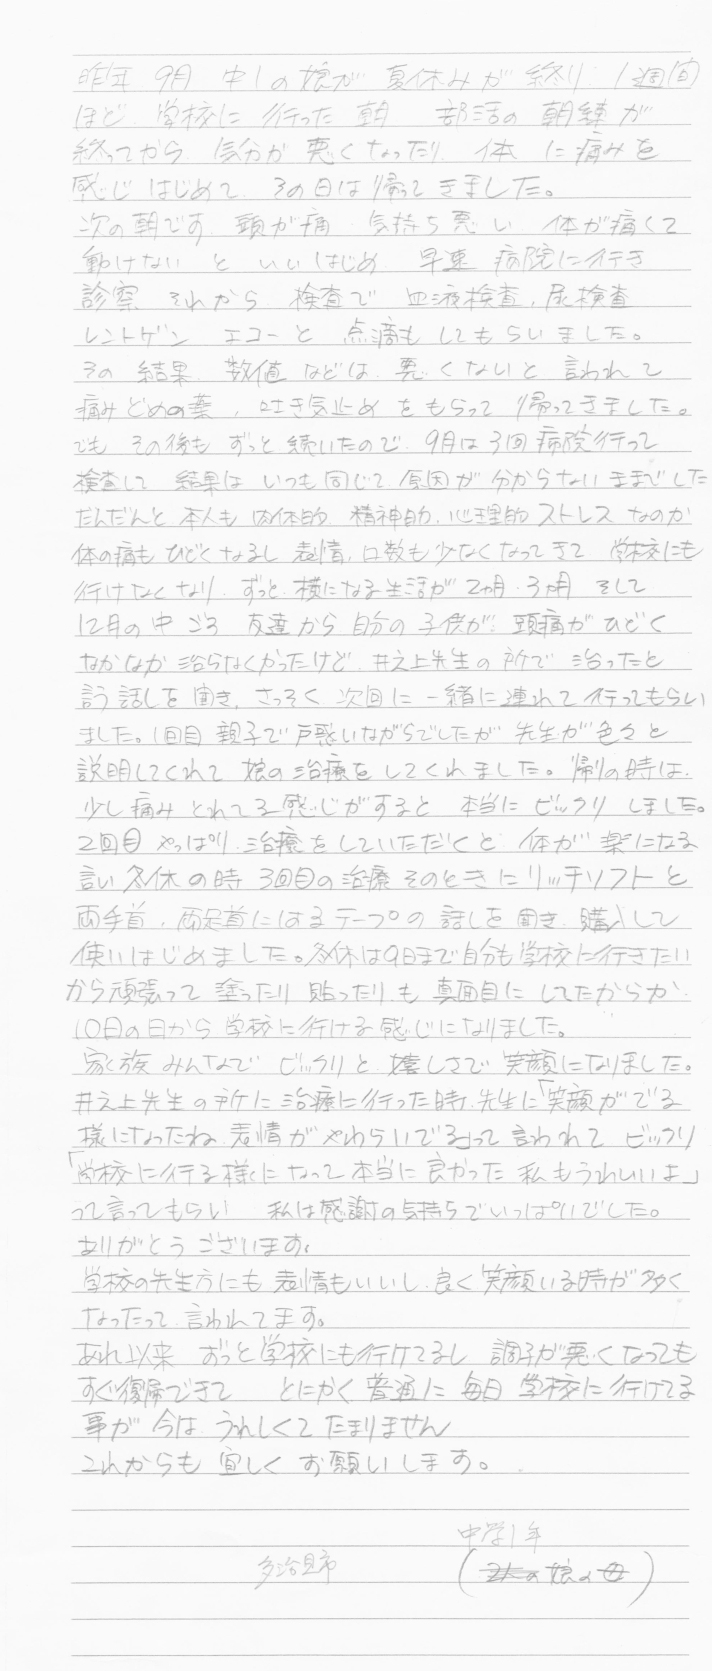 昨年 9月 中1の娘が 夏休みが 終り 1週間
ほど 学校に 行った 朝 部活の 朝練が
終ってから 気分が 悪くなったり 体 に痛みを
感じ はじめて その日は帰ってきました。
次の朝です 頭が痛 気持ち悪い 体が痛くて
動けない と いいはじめ 早速 病院に行き
診察 それから 検査で 血液検査、尿検査
レントゲン エコーと 点滴も してもらいました。
その 結果 数値 などは 悪くないと 言われて
痛みどめの薬、吐き気止め をもらって 帰ってきました。
でも その後も ずっと 続いたので 9月は3回 病院行って
検査して 結果は いつも同じで 原因が 分からないままでした
だんだんと 本人も 肉体的 精神的、心理的 ストレス なのか
体の痛も ひどくなるし 表情、口数も 少なくなってきて 学校にも
行けなくなり ずっと 横になる生活が 2ヵ月・3ヵ月 そして
12月の中ごろ 友達から 自分の 子供が 頭痛が ひどく
なかなか 治らなくかったけど 井之上先生の 所で 治ったと
言う 話しを 聞き、さっそく 次回に 一緒に 連れて 行ってもらい
ました。1回目 親子で 戸惑いながらでしたが 先生が 色々と
説明してくれて 娘の 治療を してくれました。帰りの時は
少し痛み とれてる 感じがすると 本当に ビックリ しました。
2回目 やっぱり 治療を していただくと 体が 楽になる
言い 冬休の時 3回目の治療 そのときに リッチソフトと
両手首、両足首にはるテープの 話しを 聞き 購入して
使いはじめました。冬休は9日まで自分も学校に行きたい
から頑張って 塗ったり 貼ったりも 真面目に してたからか
10日の日から 学校に行ける 感じになりました。
家族 みんなで ビックリと 嬉しさで 笑顔になりました。
井之上先生の所に 治療に行った時 先生に「笑顔がでる
様になったね 表情が やわらいでる」って 言われて ビックリ
「学校に行ける様になって本当に良かった 私もうれしいよ」
って言ってもらい 私は感謝の気持ちでいっぱいでした。
ありがとう ございます。
学校の先生方にも 表情もいいし 良く笑顔いる時が多く
なったって 言われてます。
あれ以来 ずっと学校にも行けてるし 調子が悪くなっても
すぐ復帰できて とにかく 普通に 毎日 学校に 行けてる
事が 今は うれしくて たまりません
これからも 宜しく お願いします。
中学1年
多治見市 ( 娘の母 )